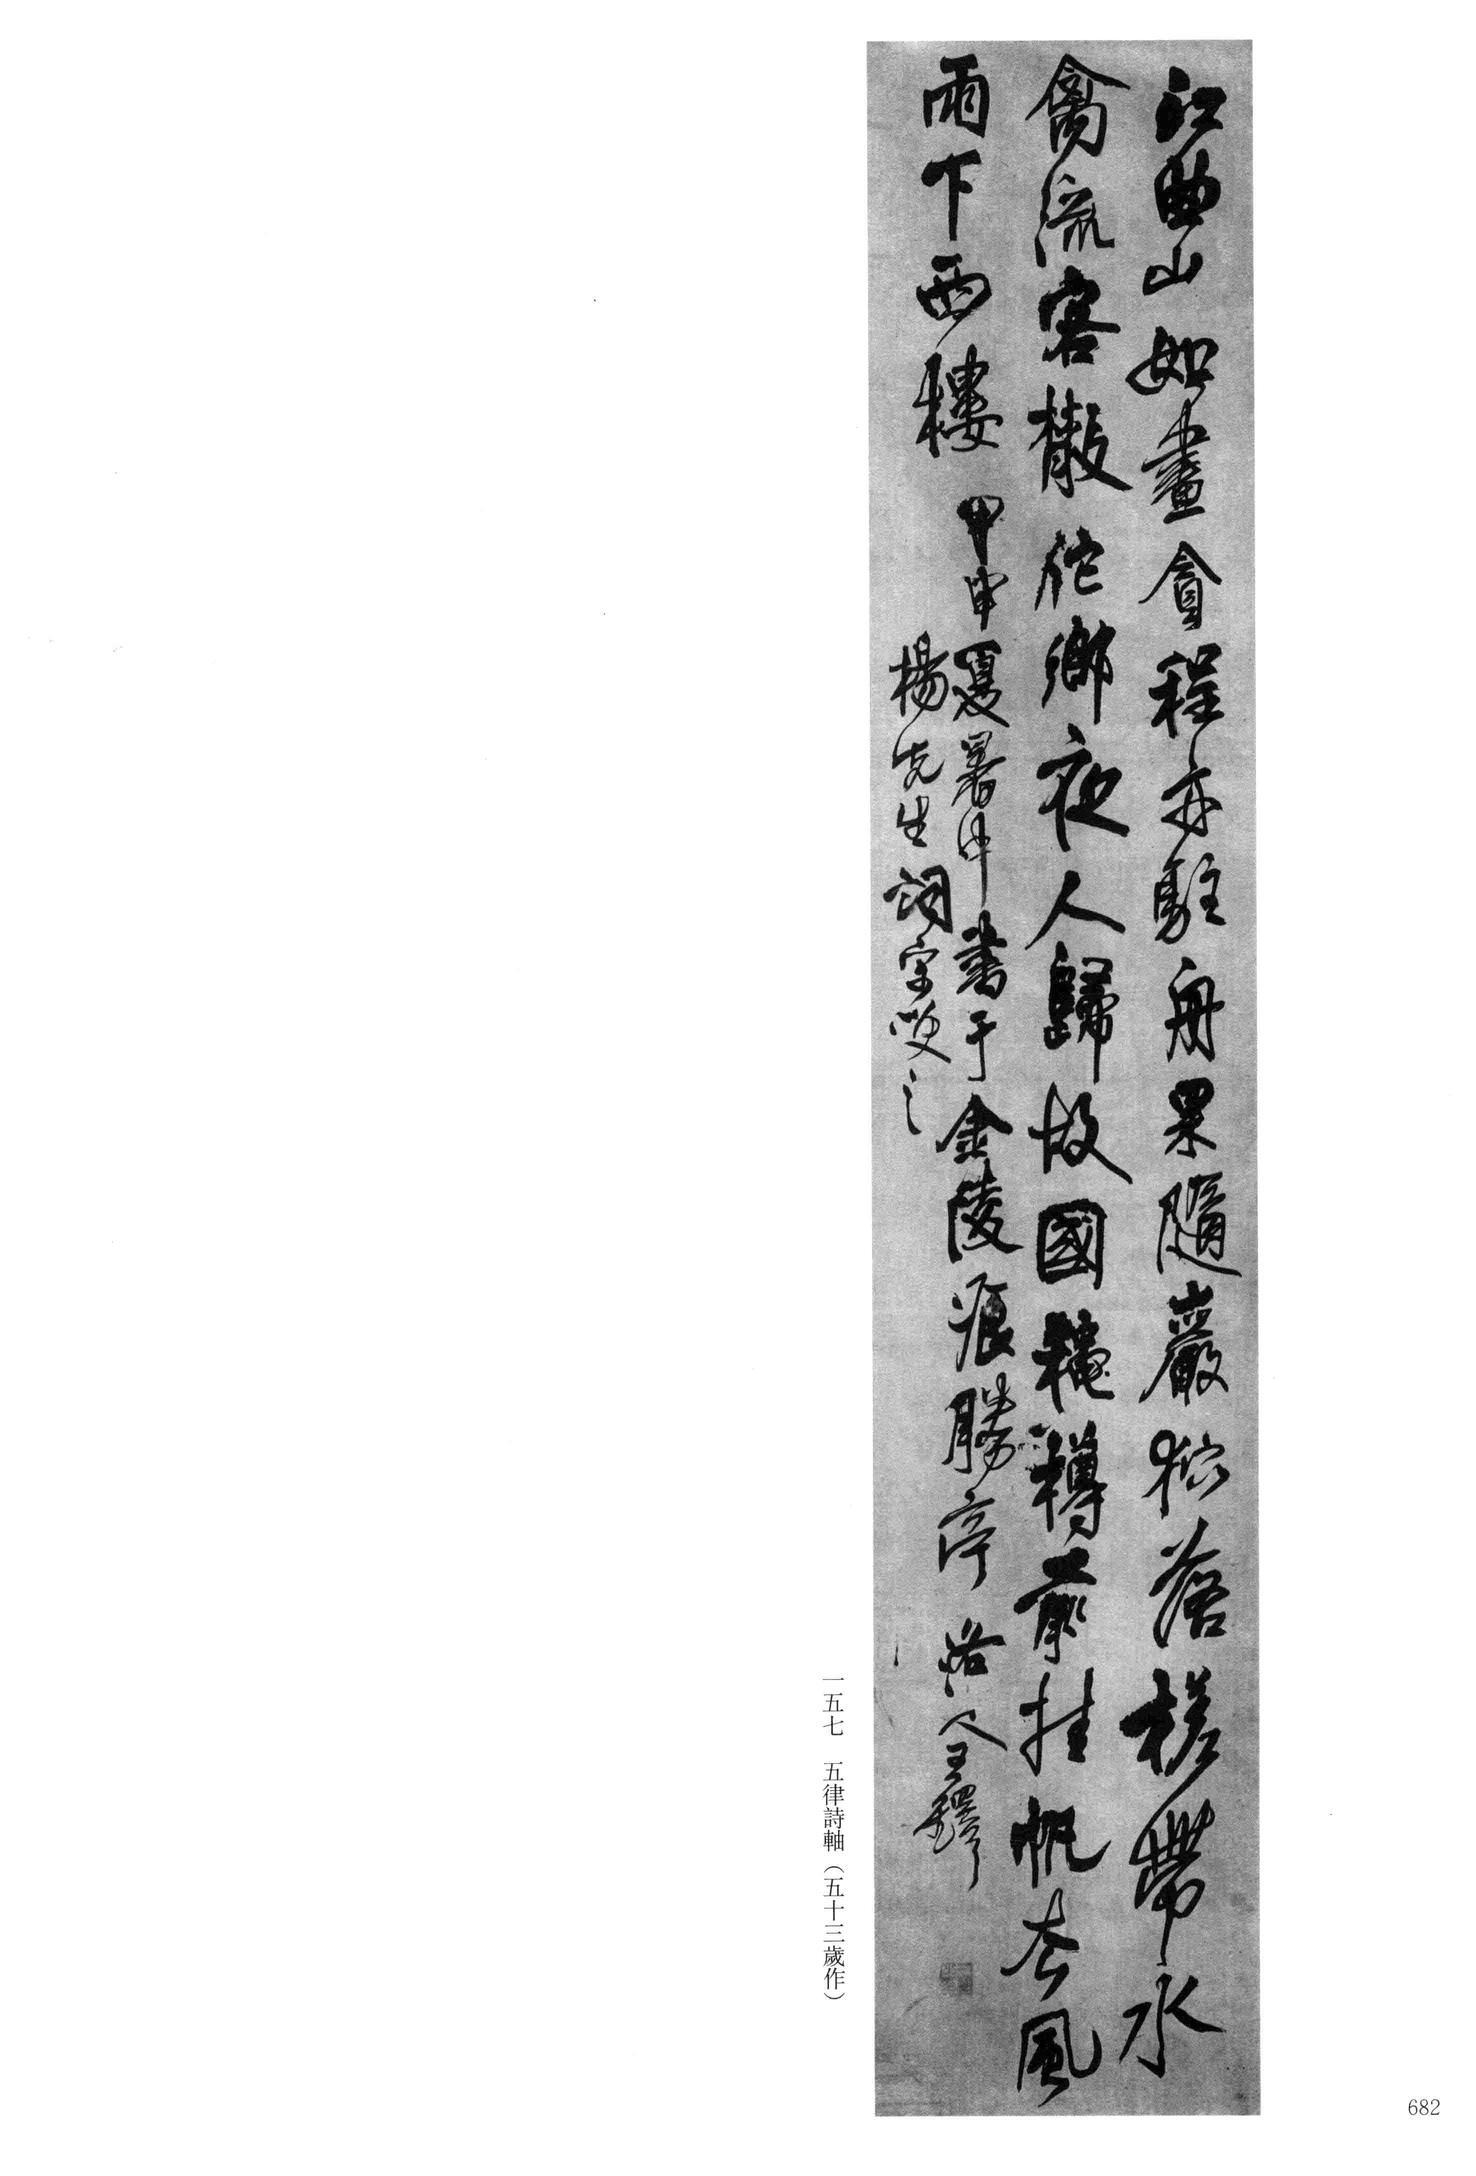 江曲山如畫貪程亦駐舟果隨巖狖落槎帶水
禽流客散佗鄉夜人歸故國穐樽前挂帆去風
雨下西樓 甲申夏暑中書于金陵痕勝亭 洛人王鐸
楊先生詞宗咲之
一五七 五律詩軸(五十三歲作)
682